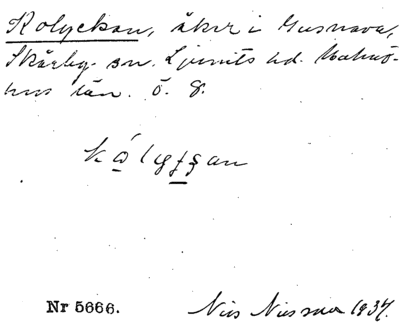 Kolyckan, åker i Gusnava,
Skårby sn. Ljunits hd. Malmö-
hus län. ö. 8.
Nr 5666. Nils Nilsson 1937.